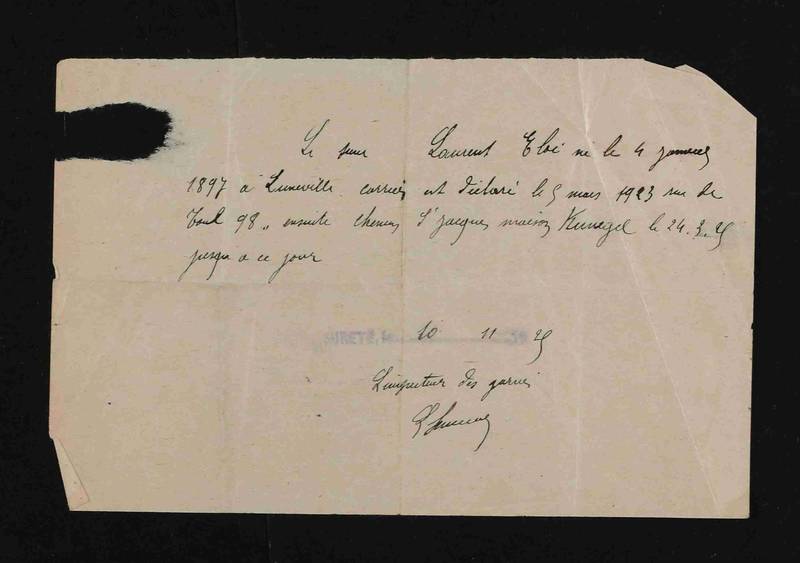 Le sieur Laurent Eloi né le 4 janvier
1897 à Luneville carrier est déclaré le 5 mars 1923 rue de
Toul 98, ensuite chemin St Jacques maison Kunegel le 24.3.25
jusqu'a ce jour
SURETÉ, le
10 11 25
L'inspecteur des garnis